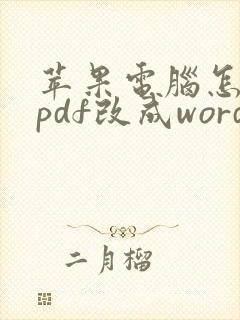 苹果電腦怎
pdf改成word
二月榴